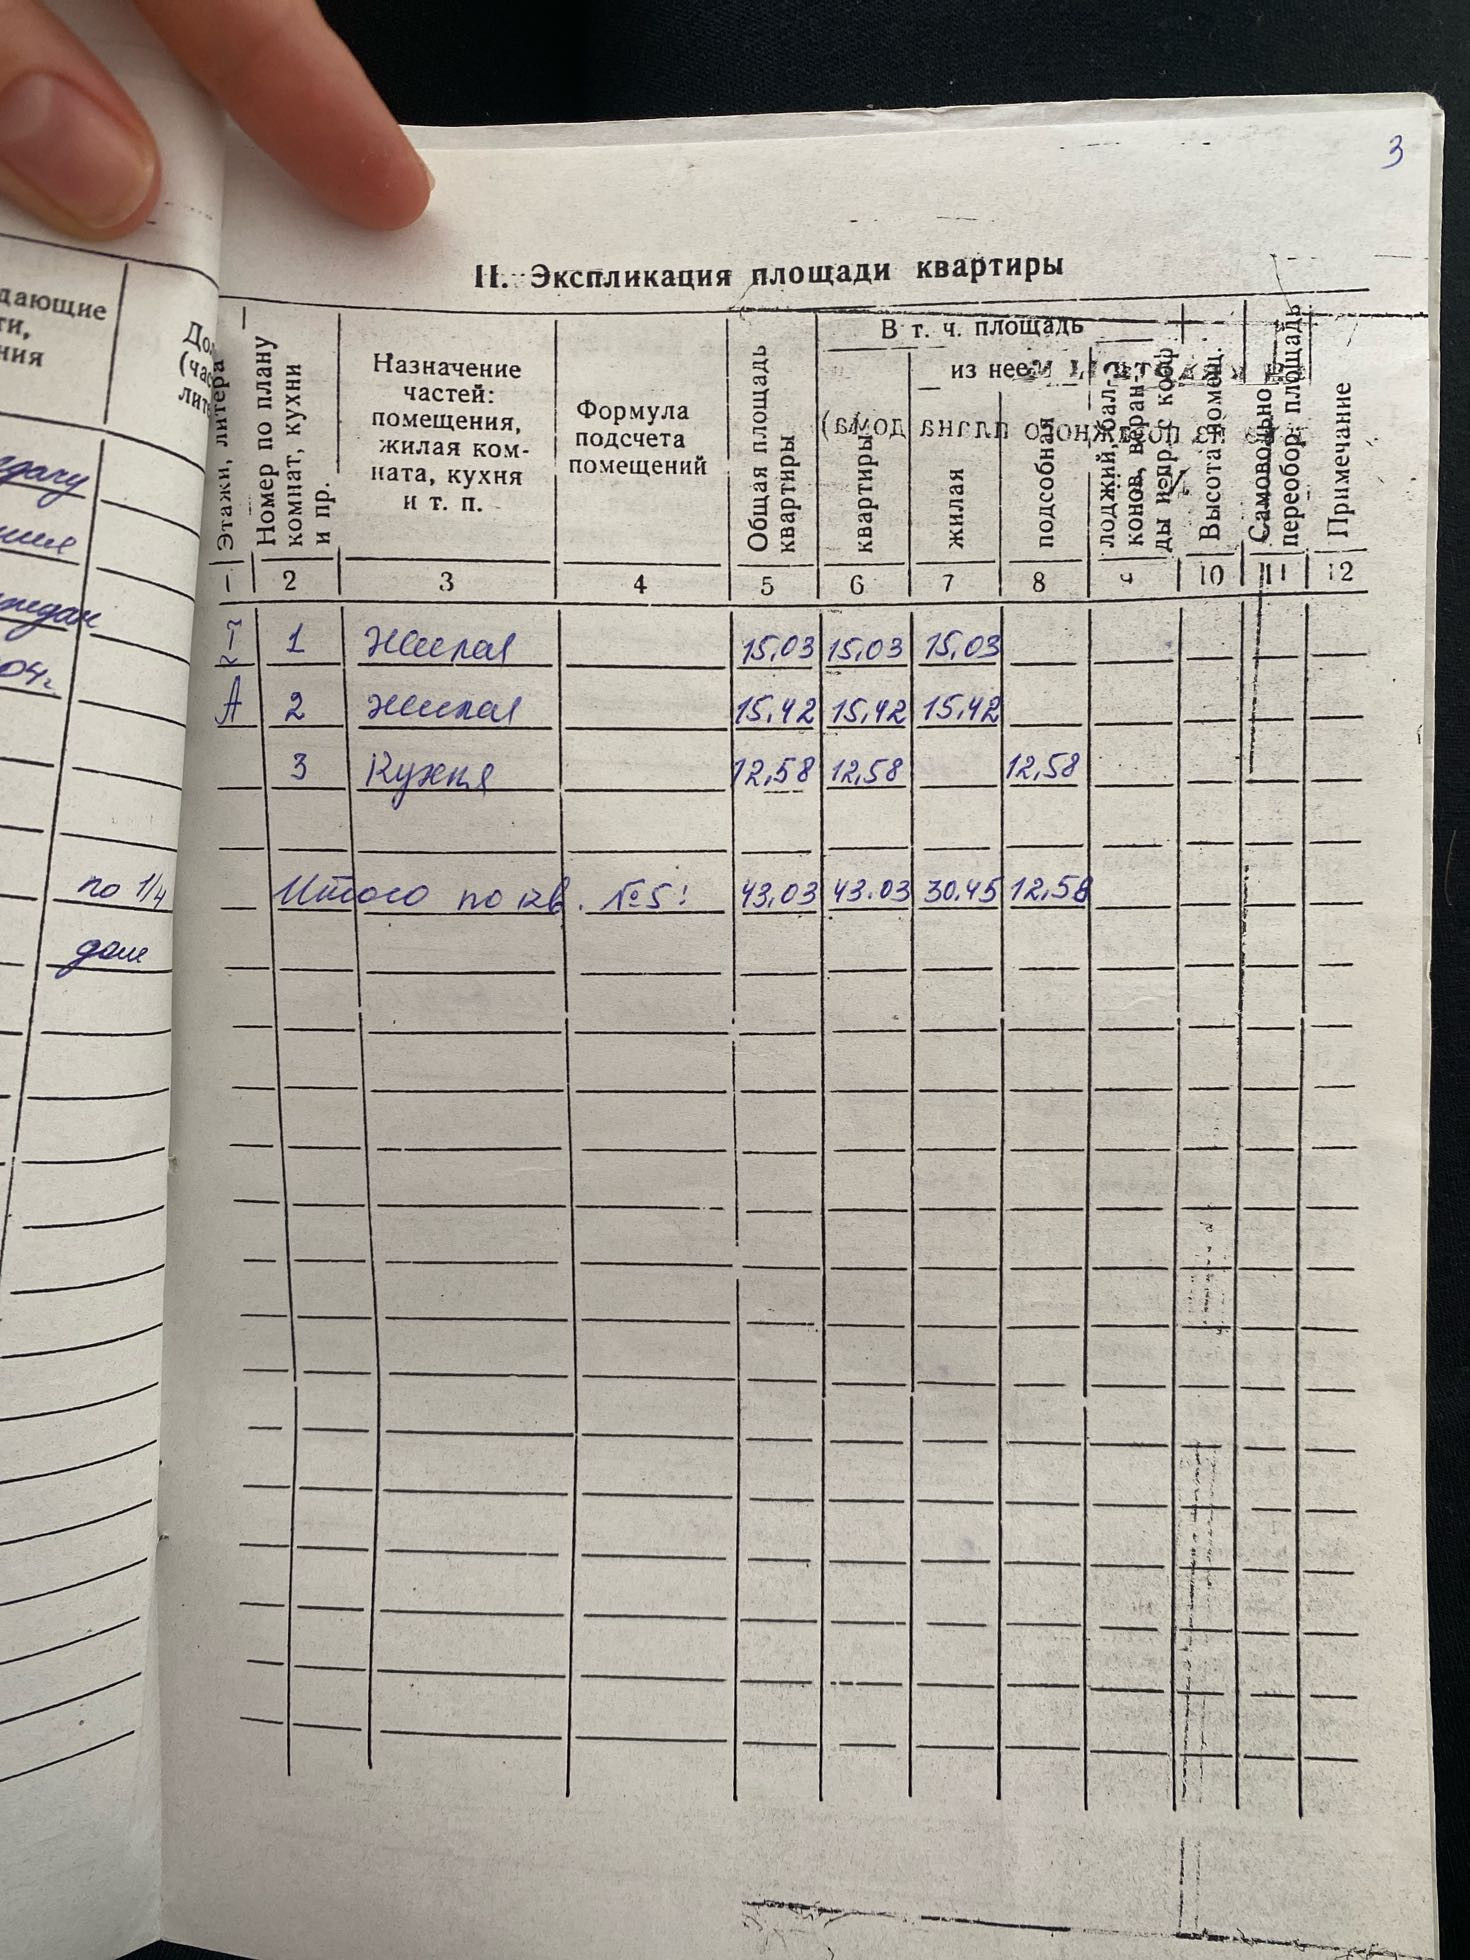 3
дающие
ти,
ния
по 1/4
доле
II. Экспликация площади квартиры
Этажи, литера
Номер по плану комнат, кухни и пр.
Назначение
частей:
помещения,
жилая ком-
ната, кухня
и т. п.
Формула
подсчета
помещений
Общая площадь квартиры
В т. ч. площадь
квартиры
из нее
жилая
подсобная
лоджий, бал-
конов, веран-
ды и пр. с коэф
Высота помещ.
Самовольно переобор. площадь
Примечание
1 2 3 4 5 6 7 8 9 10 11 12
I 1 Жилая 15,03 15,03 15,03
А 2 жилая 15,42 15,42 15,42
3 Кухня 12,58 12,58 12,58
Итого по кв. №5: 43,03 43.03 30.45 12,58